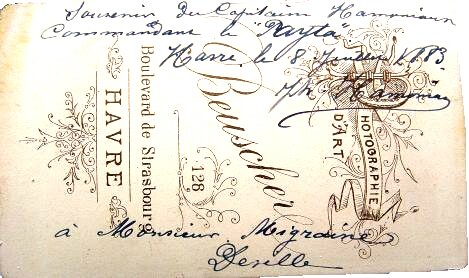 Souvenir du Capitaine
Commandant le "Payta"
Havre le 8 Juillet 1883.
à Monsieur Migraine
Deville
PHOTOGRAPHIE
D'ART
Beuscher
128
Boulevard de Strasbourg
HAVRE